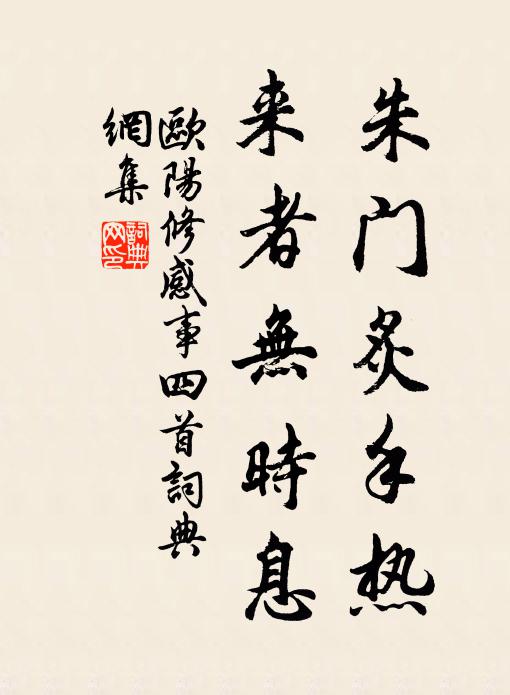 朱门炙手热
来者無時息
歐陽修感事四首詞典
網集
詞典
网印